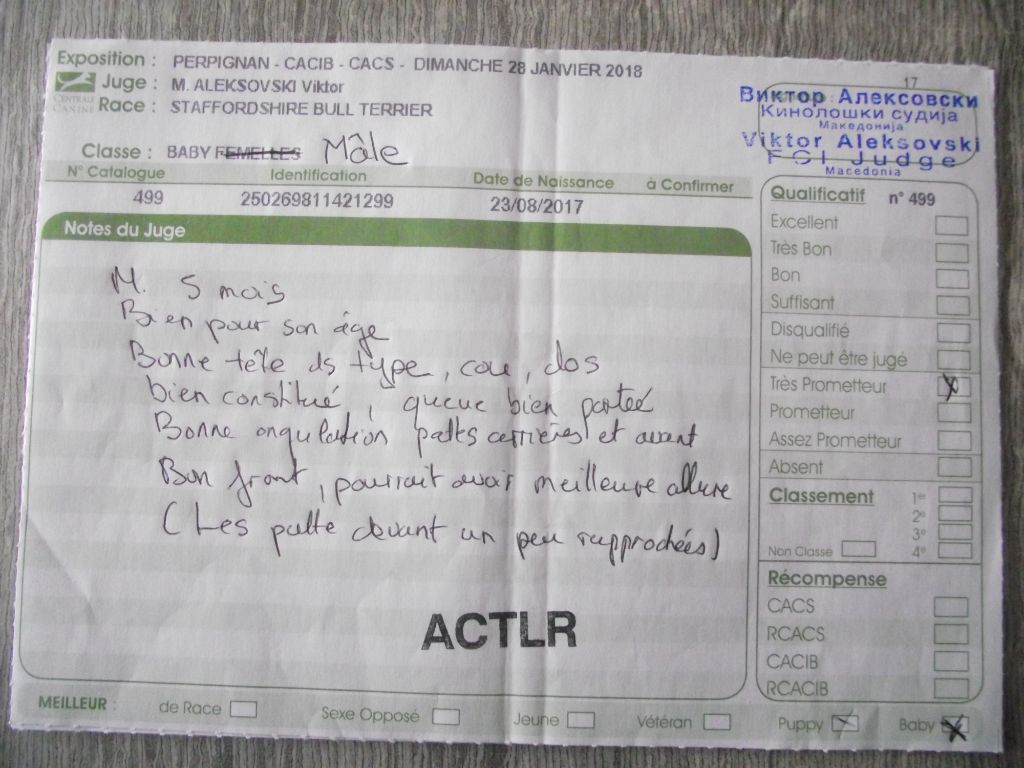 Exposition : PERPIGNAN - CACIB - CACS - DIMANCHE 28 JANVIER 2018
Juge : M. ALEKSOVSKI Viktor
CENTRALE CANINE
Race : STAFFORDSHIRE BULL TERRIER
Classe : BABY FEMELLES Mâle
17
Виктор Алексовски
Кинолошки судија
Македонија
Viktor Aleksovski
FCI Judge
Macedonia
N° Catalogue Identification Date de Naissance à Confirmer
499 250269811421299 23/08/2017
Notes du Juge
M. 5 mois
Bien pour son âge
Bonne tête ds type, cou, dos
bien constitué, queue bien portée
Bonne angulation patts arrières et avant
Bon front, pourrait avoir meilleure allure
(Les patte devant un peu rapprochées)
ACTLR
Qualificatif n° 499
Excellent
Très Bon
Bon
Suffisant
Disqualifié
Ne peut être jugé
Très Prometteur X
Prometteur
Assez Prometteur
Absent
Classement 1er
2e
3e
Non Classe 4e
Récompense
CACS
RCACS
CACIB
RCACIB
MEILLEUR : de Race Sexe Opposé Jeune Vétéran Puppy X Baby X